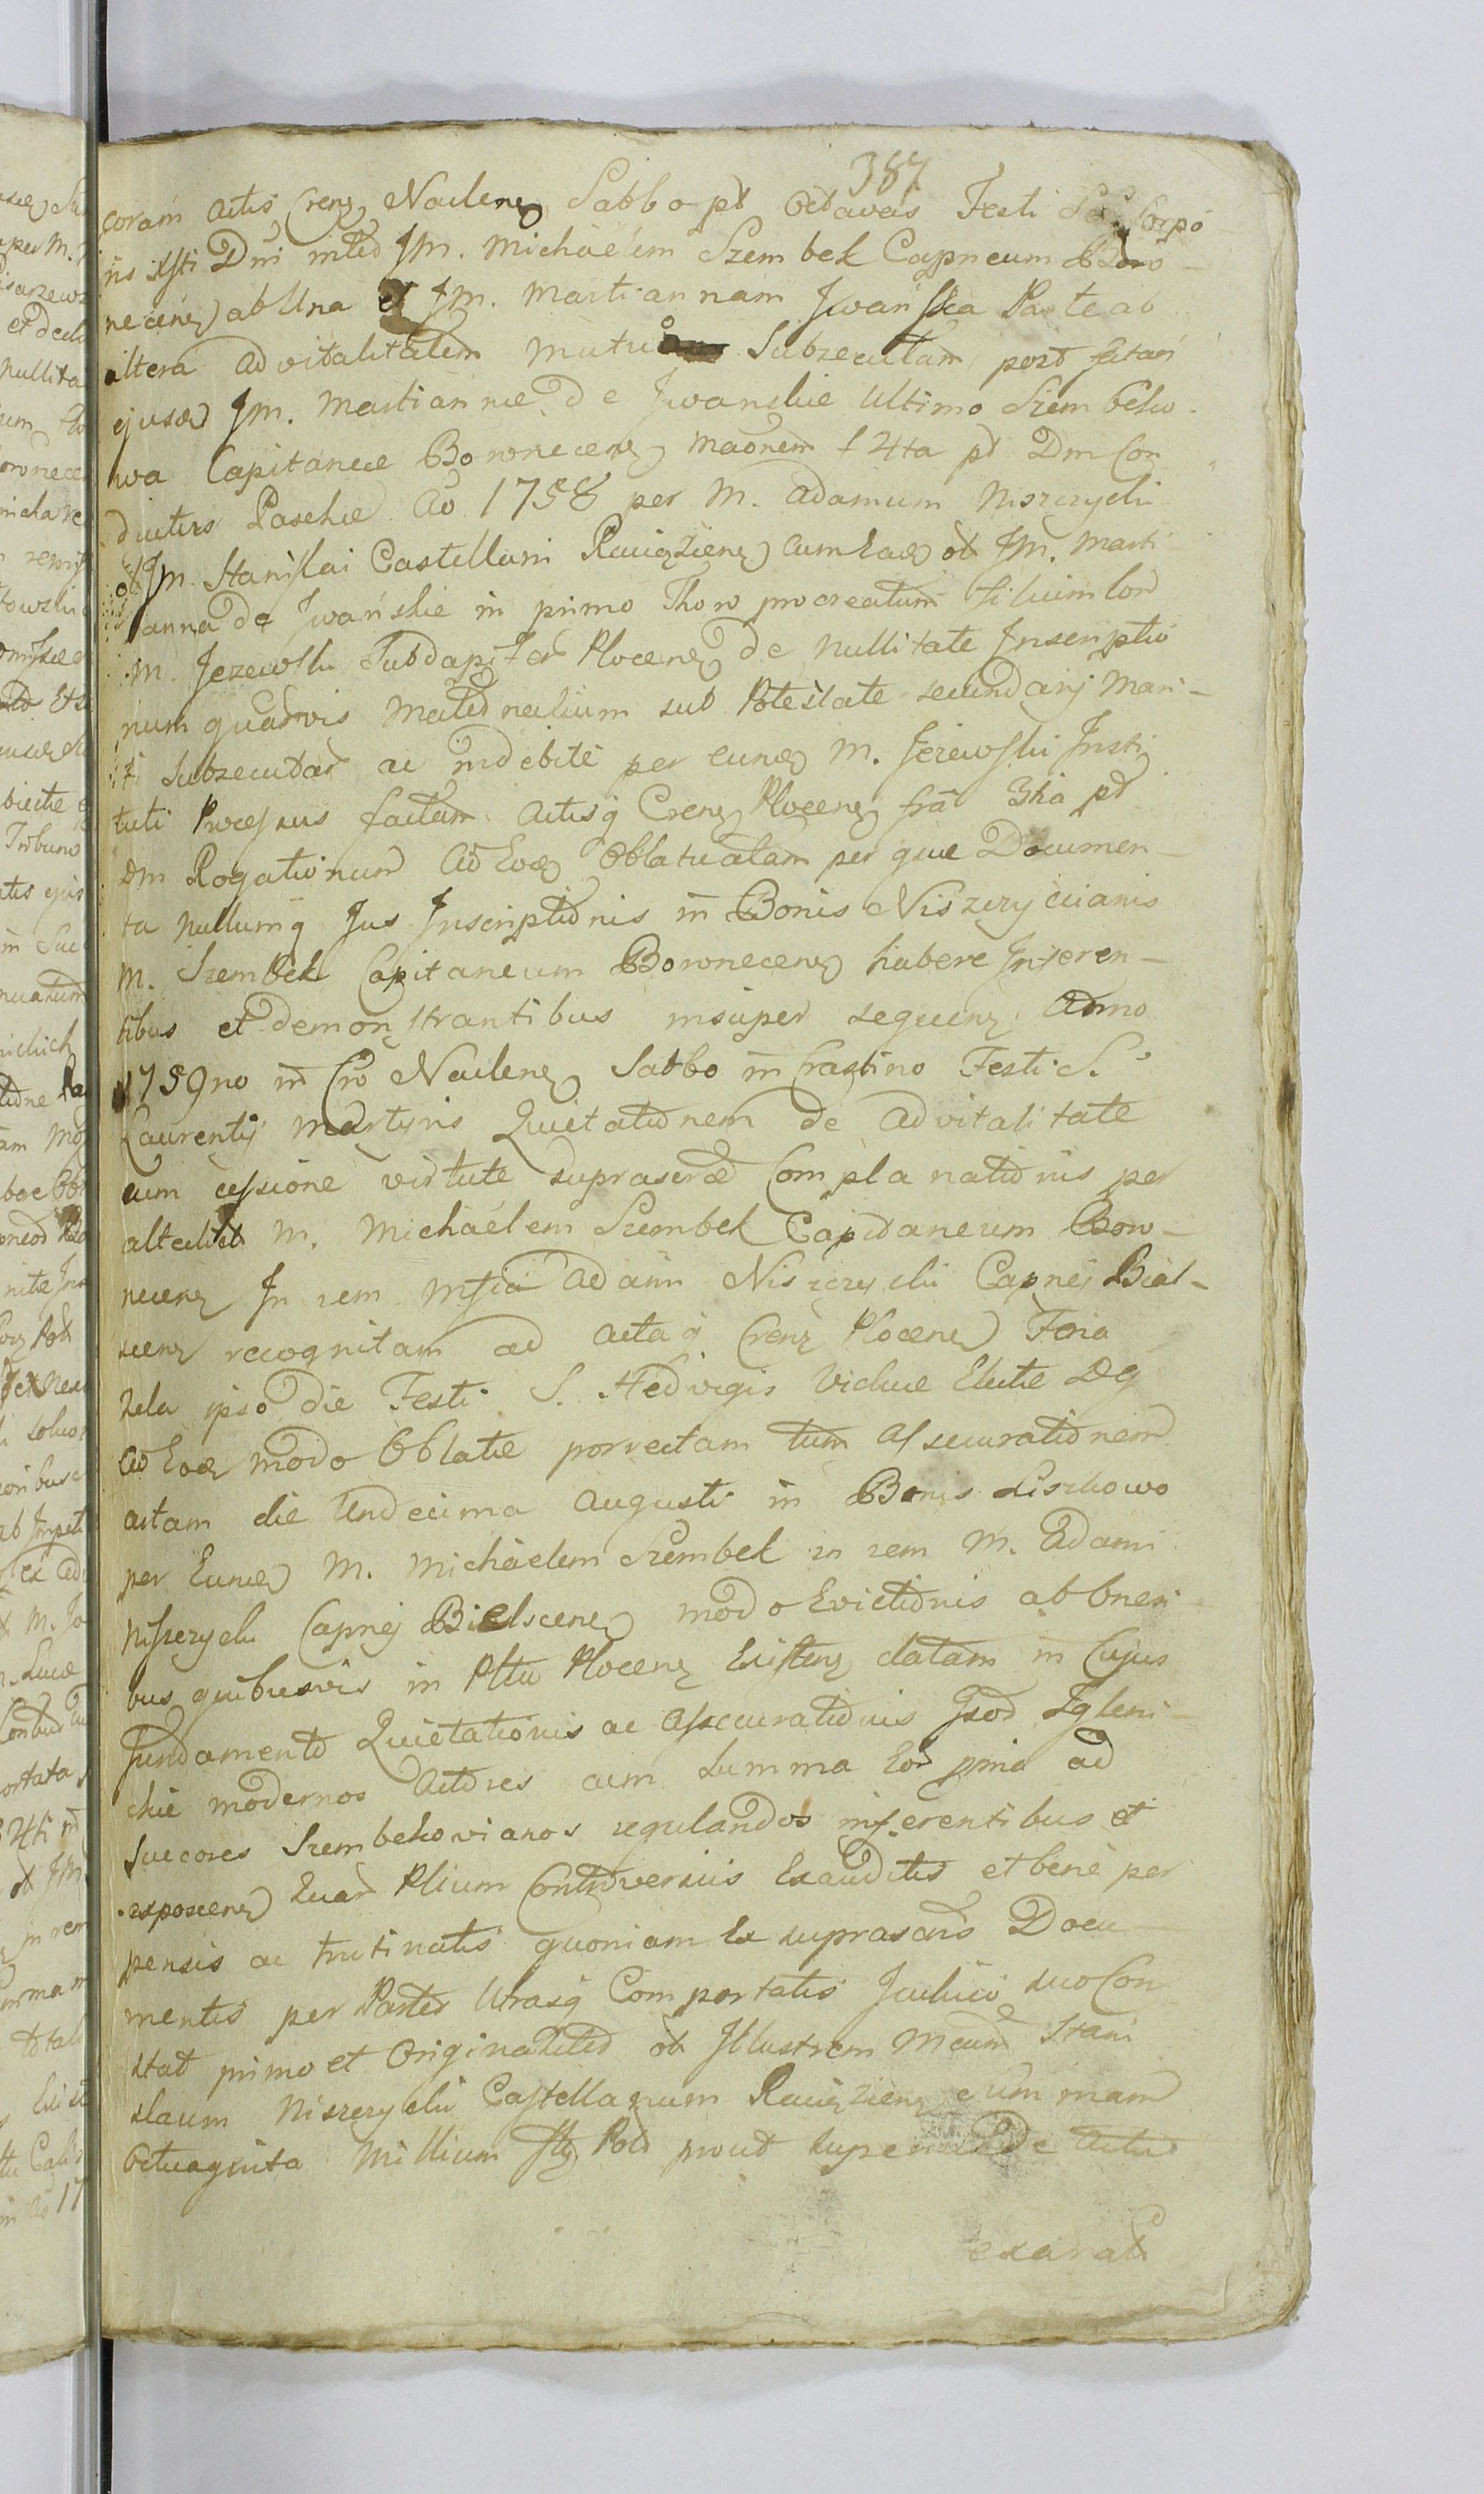 387
coram Actis Crens Naclens Sabbo pt Octavas Festi SS. Corpo
ris Xsti Dni inter JM. Michaelem Szembek Capneum Boro-
necens ab Una et JM. Martiannam Jwanska Parte ab
altera advitalitatem mutuam Subsecutam, post fatan
ejusd JM. Martiannæ de Jwanskie Ultimo Szembeko-
wa Capitaneæ Borownecens maonem f 4ta pt Dm Con
ductus Paschæ Ao 1758 per M. Adamum Niszczycki
o JM. Stanislai Castellani Raciąziens cum Eade ot JM. Marti
anna de Jwańskie in primo Thoro procreatum filium con
M. Jezewski Subdapifer Plocens de nullitate Inscriptio
num quarvis Maternalium sub Potestate secundarij Mari-
ti subsecutar ac indebite per eund M. Jezewski Insti
tuti Processus factam Actisq Crens Plocens fra 3tia pt
Dm Rogationum ad Eade Oblatuatam per quæ Documen-
ta nullumq Jus Inscriptionis in Bonis Niszczycianis
M. Szembek Capitaneum Borownecens habere Inferen-
tibus et demonstrantibus insuper sequens Anno
1759no in Cro Naclens Sabbo in Crastino Festi S.
Laurentij Martyris Quietationem de advitalitate
cum cessione virtute suprascrae Complanationis per
altedict M. Michaelem Szembek Capitaneum Borow-
necens In rem Mfici Adami Niszczycki Capnej Biel-
scens recognitam ad Actaq Crens Plocens Feria
2da ipso die Festi S. Hedvigis Viduæ Electæ Dq
ad Eade modo Oblatæ porrectam tum Assecurationem
actam die Undecima Augusti in Bonis Liszkowo
per Eund M. Michaelem Szembek in rem M. Adami
Niszczycki Capnej Bielscens modo Evictionis ab oneri
bus quibusvis in Pttu Plocens Existens datam in Cujus
fundamento Quietationis ac Assecurationis Gsod Zgleni-
ckie modernos Actores cum summa Eor pma ad
Succores Szembekovianos regulandos inferentibus et
exposcens Quar Ptium Controversiis Exauditis et bene per
pensis ac trutinatis quoniam Ex suprascris Docu-
mentis per Partes Utrasq Comportatis Judicio suo Con
stat primo et Originaliter ot Illustrem Mcum Stani
slaum Niszczycki Castellanum Raciąziens eum mam
Octuaginta Millium flor Pol prout superinde Actus
exarat